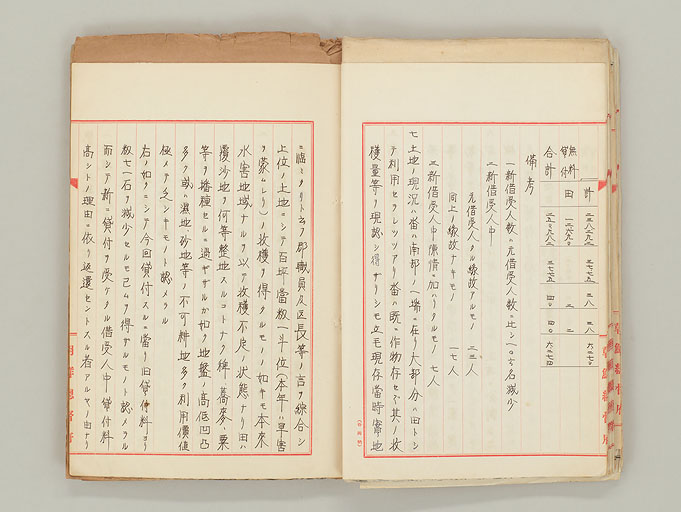 計
無料貸付
田
合計
備考
一 新借受人数ハ元借受人数ニ比シ一〇六名減少
二 新借受人中
元借受人タル縁故アルモノ 二三人
同上ノ縁故ナキモノ 一七人
三 新借受人中陳情ニ加ハリタルモノ 七人
七 上地ノ現況ハ畓ハ南部ノ一場ニ在リ大部分ハ田トシ
テ利用セラレツツアリ畓ハ既ニ作物存セズ其ノ収
穫量等ヲ現認シ得ザリシモ立毛現存當時実地
ニ臨ミタリト云フ郡職員及区長等ノ言ヲ綜合シ
上位ノ土地ニシテ百坪當籾一斗位(本年ハ旱害
ヲ蒙ムレリ)ノ收穫ヲ得タルモノノ如キモ本来
水害地域ナルヲ以テ收穫不定ノ状態ナリ田ハ
覆沙地ヲ何等整地スルコトナク稗、蕎麥、粟
等ヲ播種セルニ過ギザルガ如ク地盤ノ高低凹凸
多ク或ハ濕地、砂地等ノ不可耕地多ク利用價値
極メテ乏シキモノト認メラル
右ノ如クニシテ今回貸付スルニ當リ旧貸付料ヨリ
籾七一石ヲ減少セルモ已ムヲ得ザルモノト認メラル
而シテ新ニ貸付ヲ受ケタル借受人中貸付料
高シトノ理由ニ依リ返還セントスル者アルヤノ由ナリ